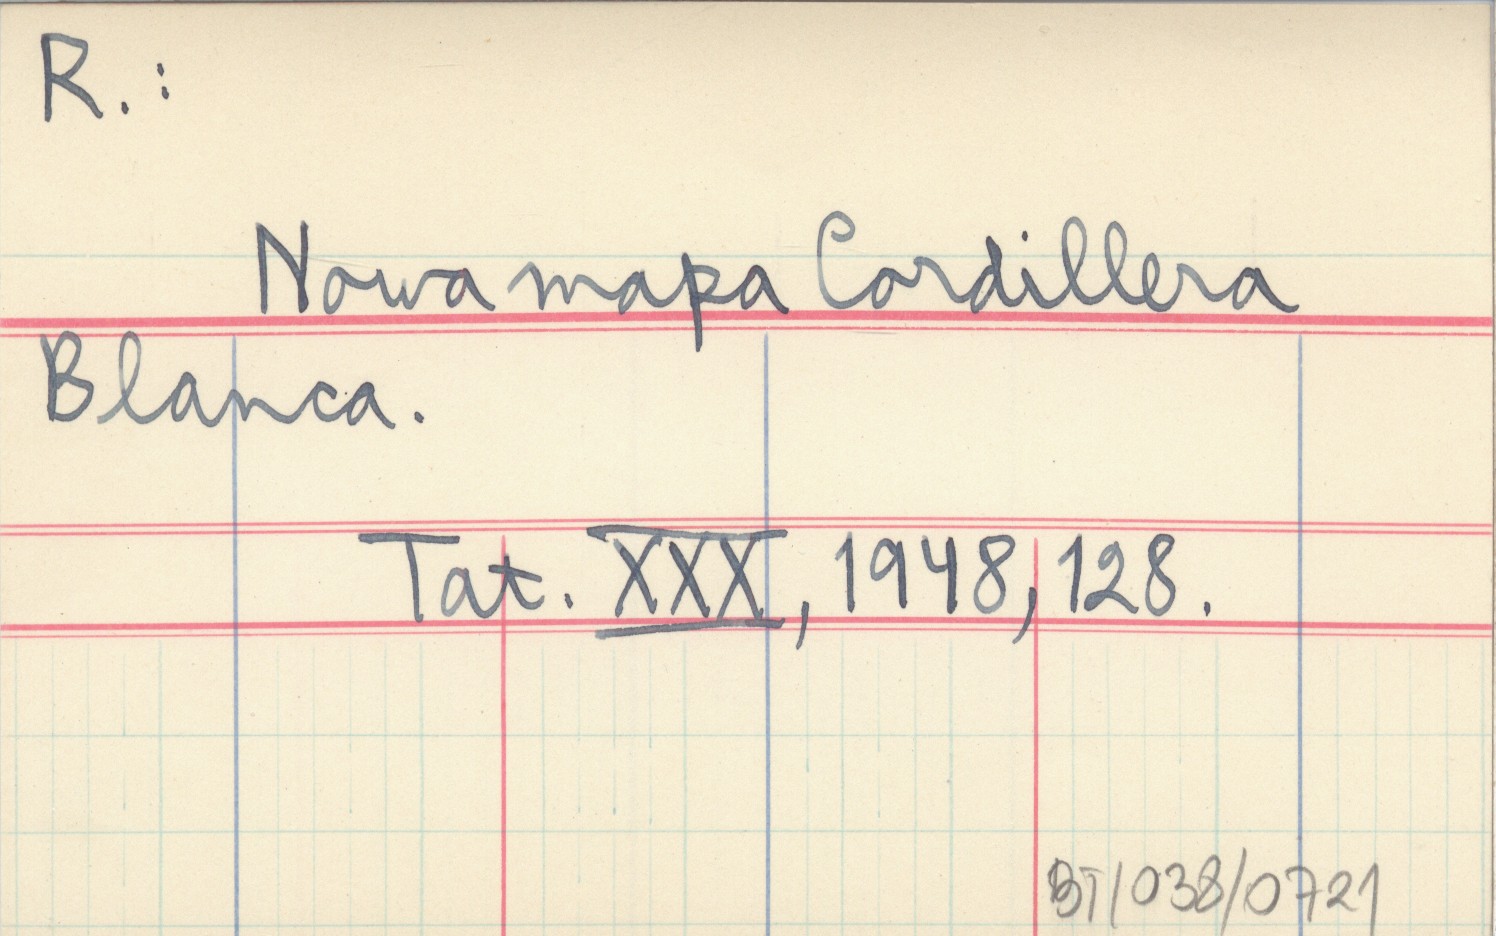 R.:
Nowa mapa Cordillera
Blanca.
Tat. XXX, 1948, 128.
BT/038/0721